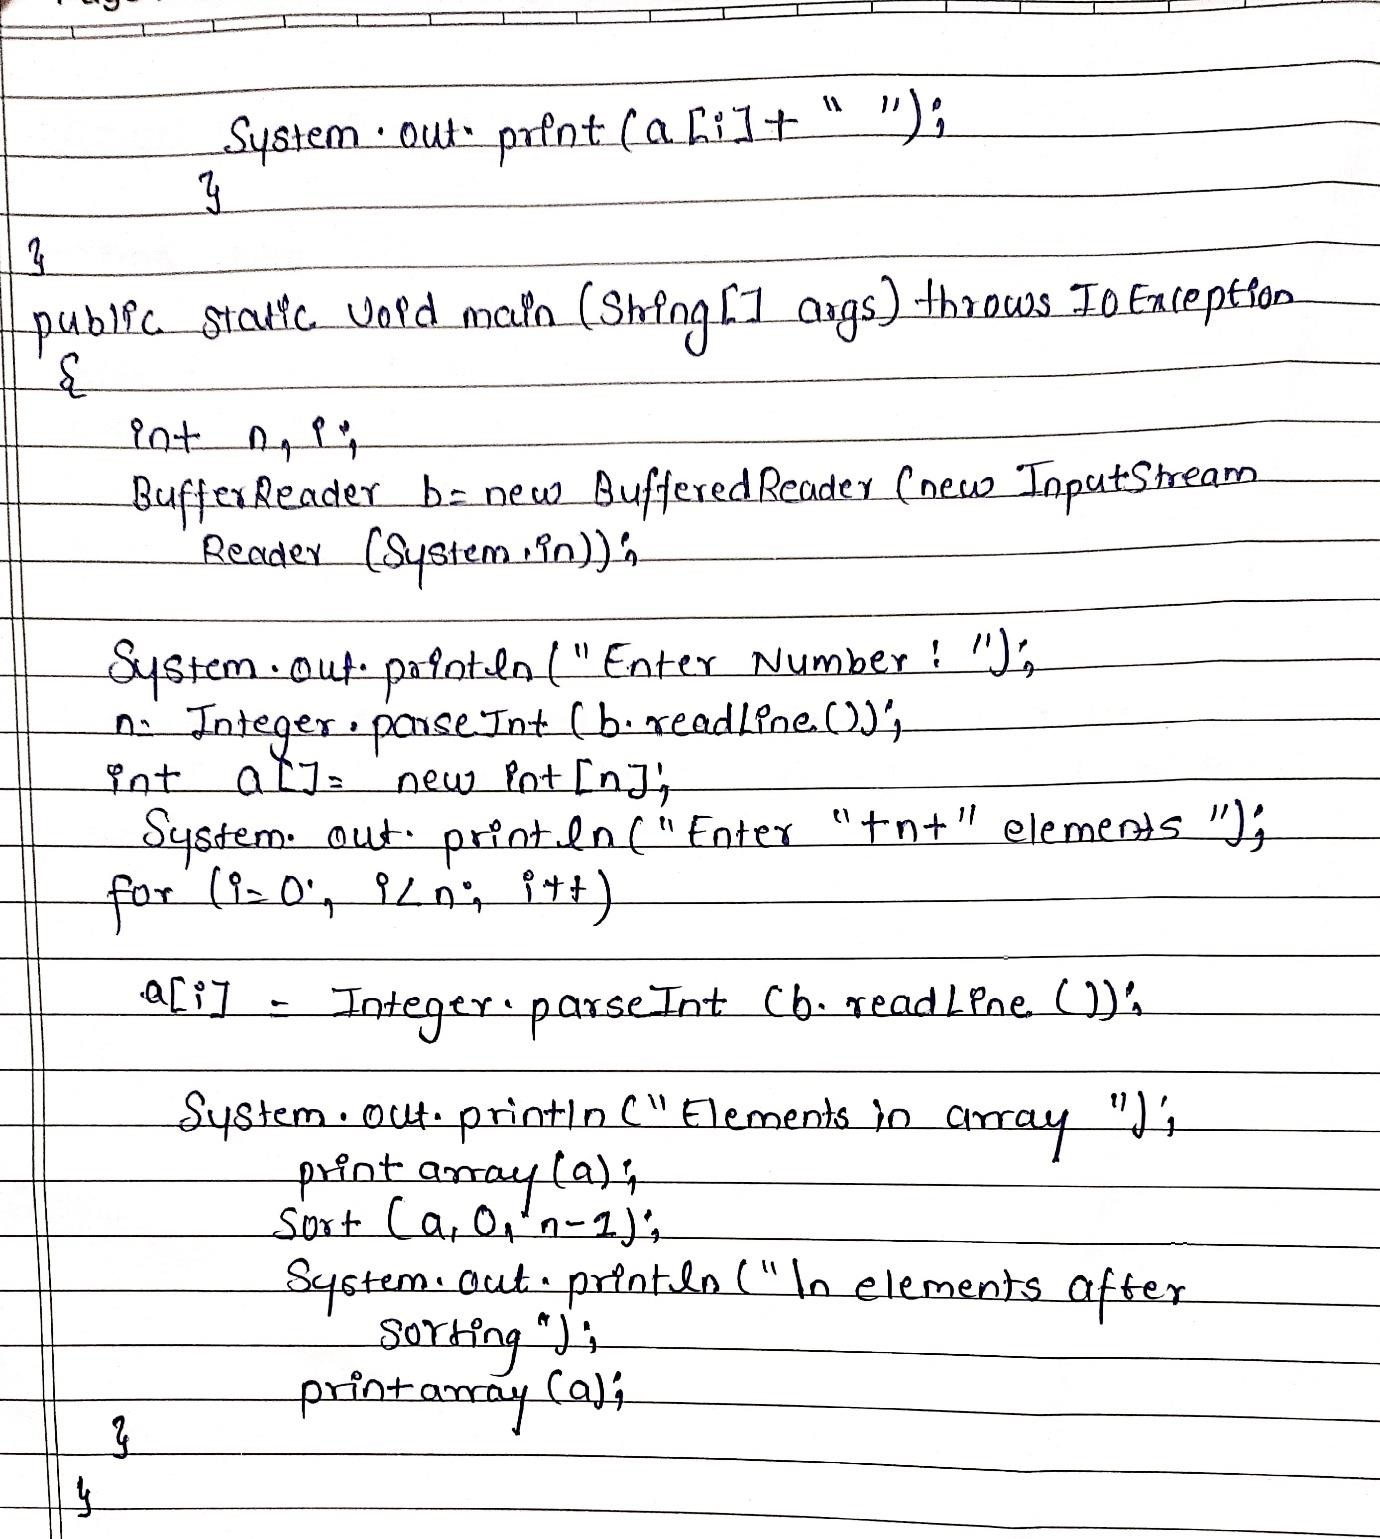 System.out.print(a[i]+" ");
}
}
public static void main(String[] args) throws IOException
{
int n, i;
BufferReader b= new BufferedReader (new InputStream
Reader (System.in));
System.out.println("Enter Number : ");
n= Integer.parseInt (b.readLine());
int a[]= new int[n];
System.out.println("Enter "+n+" elements ");
for (i=0; i<n; i++)
a[i] = Integer.parseInt (b.readLine ());
System.out.println("Elements in array ");
print array(a);
Sort (a, 0, n-1);
System.out.println("\n elements after
sorting");
printarray (a);
}
}